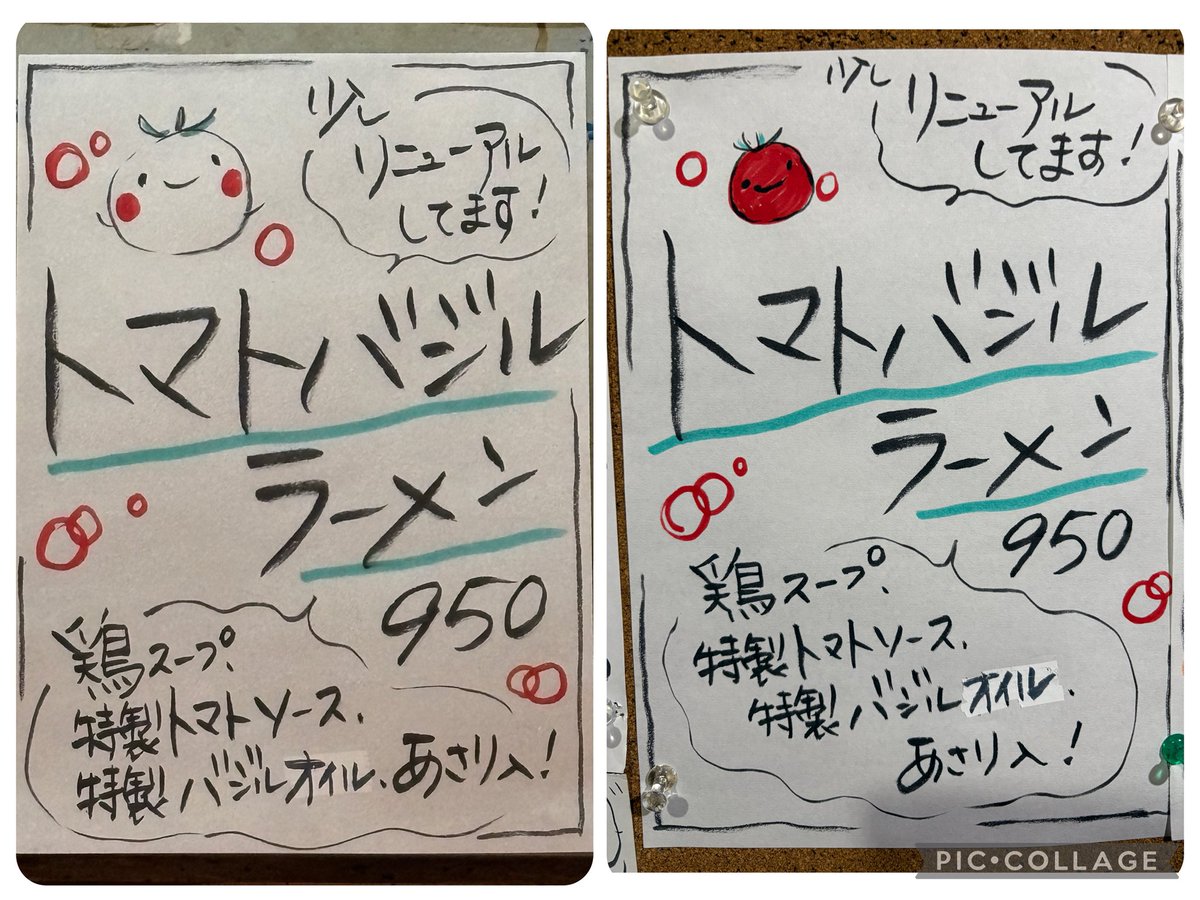 少し
リニューアル
してます!
トマトバジル
ラーメン
950
鶏スープ、
特製トマトソース、
特製バジルオイル、あさり入!
少し
リニューアル
してます!
トマトバジル
ラーメン
950
鶏スープ、
特製トマトソース、
特製バジルオイル、
あさり入!
PIC•COLLAGE